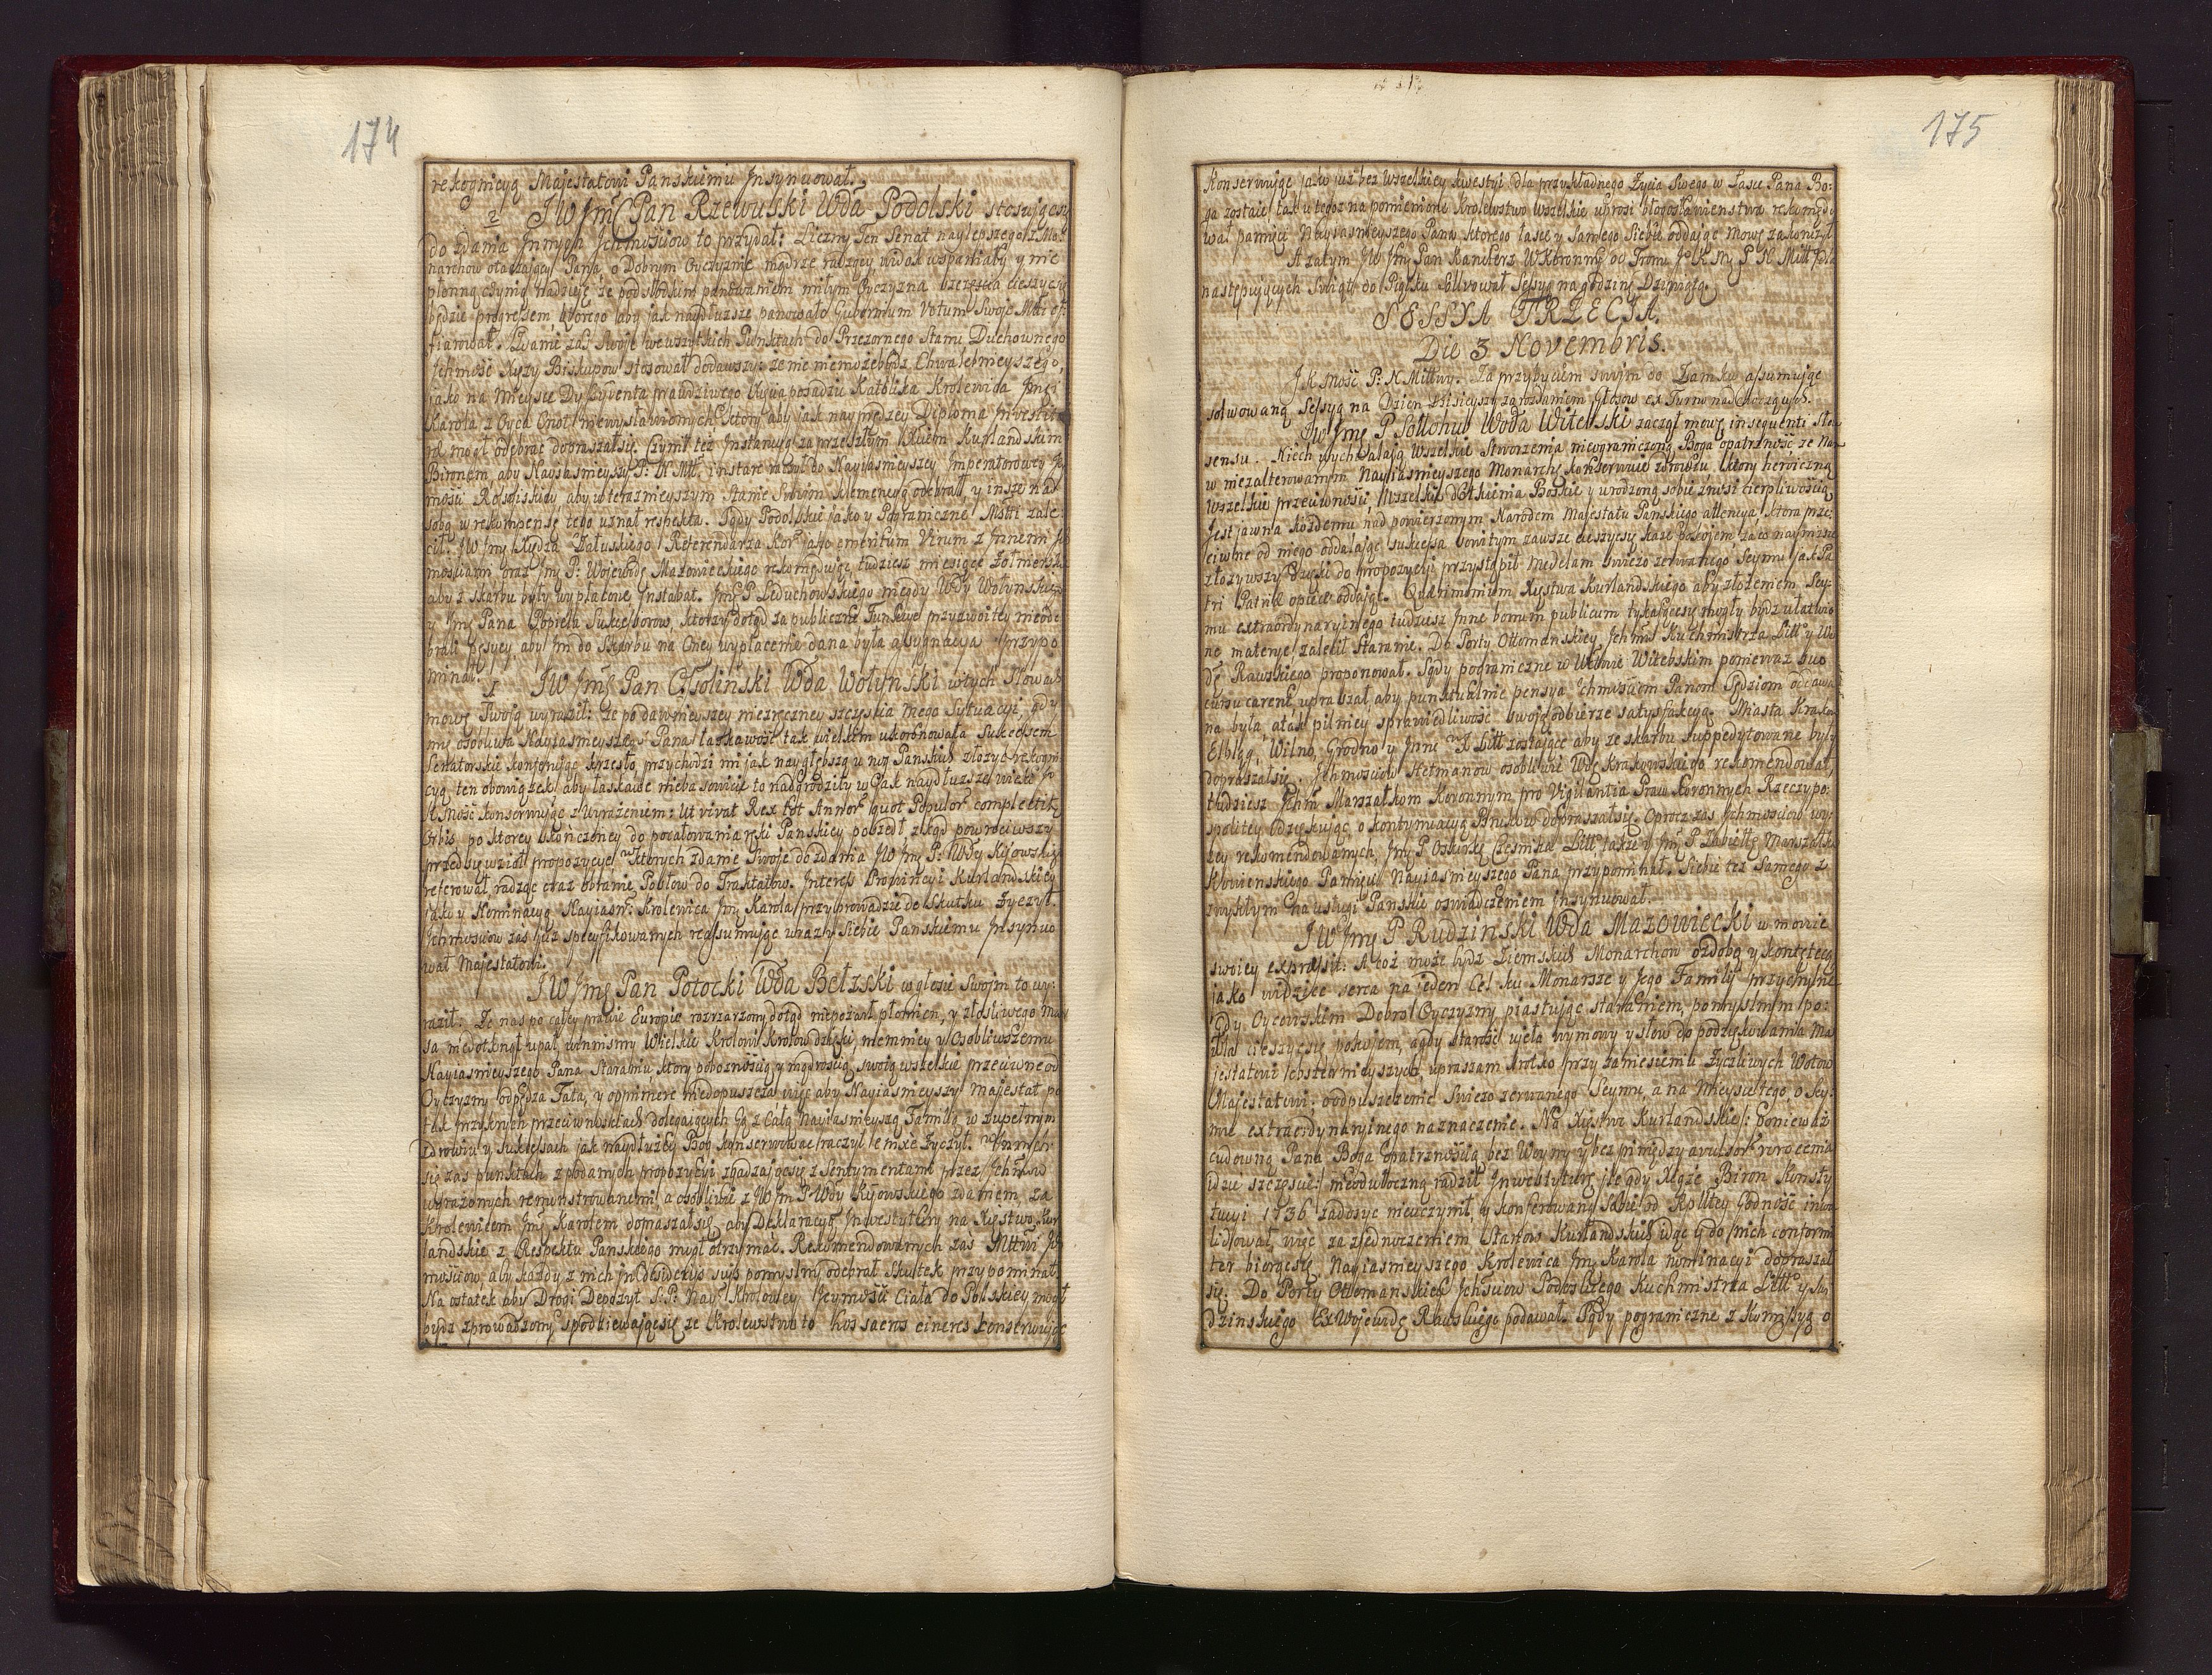 174
rekognicyą Majestatowi Panskiemu Insynuował.
2 JW Jmć Pan Rzewuski Wda Podolski stosuiący
do zdania Innych Ichmościow to przydał: Liczny Ten Senat naylepszego z Mo-
narchow otaczaiący Pana o Dobrym Oyczyzny mądrze radzący widok wspaniały y nie
płonną czynią nadzieię że pod słodkim panowaniem miłym Oyczyzna szczęścia cieszyć się
będzie progressem ktorego aby jak naydłuzsze panowało Gubernium Votum Swoje
fiarował. Zdanie zaś Swoje we wszystkich Punktach do Przezornego Stanu Duchownego
Ichmość Xięzy Biskupow stosował dodawszy: że nic nie może bydz Chwalebnieyszego,
jako na Mieysce Dyssydenta prawdziwego Chwa posadzić Katolika Krolewica Jmći
Karola z Oyca Cnot niewysławionych ktory aby jak nayprędzey Diploma Investitu
rę mogł odebrać dopraszał się. Czynił też Instancyą za przeszłym Xciem Kurlandskim
Bironem aby Nayiasnieyszy P: N: Mtt: instare raczył do Nayiasnieyszey Imperatorowey Jey
mości Rossyiskiey aby w teraznieyszym Stanie Swoim klemencyą odebrał y insze nad
sobą w rekompensę tego uznał respekta. Sądy Podolskie jako y Pograniczne Mstti zale
cił. JW Jmć Xiędza Załuskiego Referendarza Kor: jako emeritum Virum z Innemi Ich
mościami oraz Jmć P: Wojewodę Mazowieckiego rekomenduiąc, tudziesz miesiące Zołnierskie
aby z skarbu były wypłacone Instabat. Jmć P. Leduchowskiego między Wdy Wołynskiego
y Jmć Pana Popiela Sukollektorow, ktorzy dotąd za publiczne Funkcye przyzwoitey nieode
brali pęsyey aby Im do Skarbu na Oney wypłacenie dana była assygnacya przypo
minał.
1 JW Jmć Pan Ossoliński Wda Wołynski w tych Słowach
mowę Swoją wyraził: że po dawnieyszey niezręczney szczęścia mego Sytuacyi, gdy
mię osobliwa Nayiasnieyszego Pana łaskawość tak wielkim ukoronowała Sukcessem
Senatorskie konferuiąc krzesło, przychodzi mi jak naygłębszą u nog Panskich złożyć rekogni
cyą ten obowiązek aby łaskawe nieba sowicie to nadgrodziły w jak naydłuzsze wieki Jo
K Mość konserwuiąc z wyrażeniem: Ut vivat Rex tot Annos quot Populos complectitur
Orbis, po ktorey skończoney do pocałowania ręki Panskiey poszedł zkąd powrociwszy
przedsięwzioł propozycye w ktorych zdanie Swoje do zdania JW Jmć P: Wdy Kijowskiego
referował radząc oraz obranie Posłow do Traktatow. Interess Prowincyi Kurlandskiey
jako y Nominacyą Nayiasn: Krolewica Jmć Karola przyprowadzić do Skutku Zyczył.
Ichmosciow zaś już specyfikowanych reassumuiąc wrazy Siebie Panskiemu Insynuo
wał Majestatowi.
JW Jmć Pan Potocki Wda Bełzski w głosie Swoim to wy-
raził: Że nas po całey prawie Europie rozżarzony dotąd niepożarł płomień, y złosliwego Mar
sa niedotknął upał, winnismy Wielkie Krolowi Krolow dzięki, niemniey y Osobliwszemu
Nayiasnieyszego Pana Staraniu ktory pobożnością y mądrością swoją wszelkie przeciwne od
Oyczyzny odpędza Fata, y opprimere niedopuszcza więc aby Nayiasnieyszy Majestat po
tak przykrych przeciwnościach dolegaiących Go z Całą Nayiasnieyszą Familią w zupełnym
zdrowiu y sukcessach jak naydłużey Bog konserwować raczył
się zaś punktach z podanych propozycyi zgadzaiącsię z Sentymentami przez Ichmw
wyrażonych remonstrowanemi, a osobliwie z JW Jm P Wdy Kijowskiego zdaniem, za
Krolewicem Jmć Karolem dopraszałsię aby Deklaracyą Inwestytury na Xięstwo Kur
landskie z Respektu Panskiego mogł otrzymać. Rekomendowanych zaś Mttwi Ich
mościow, aby każdy z nich in desideriis suis pomyslny odebrał Skutek przypominał.
Na ostatek aby Drogi Depozyt S: P: Nay: Krolowey Jeymości Ciała do Polskiey mogł
bydz zprowadzony spodziewaiącsię że Krolewstwo to hos sacros cineres konserwuiąc
175
Konserwuiąc jako już bez wszelkiey kwestyi dla przykładnego Zycia Swego w Łasce Pana Bo-
ga zostaie tak u tegoż na pomienione Krolewstwo wszelkie uprosi błogosławienstwa rekomędo
wał pamięci Nayiasnieyszego Pana ktorego łasce y Samego Siebie oddaiąc mowę zakonczył
A zatym JW Jmć Pan Kanclerz W Koronny od Tronu Jo K Mć P N Mttł dla
następuiących Swiąt do Piątku Sollwował Sessyą na godzinę Dziesiątą.
SESSYA TRZECIA.
Die 3 Novembris.
JK Mość P: N Miłłwy. Za przybyciem swym do Zamku assumuiąc
solwowaną Sessyą na Dzien dzisieyszy za rozdaniem Głosow ex Turno nadchodzących.
JW Jmć P Sołłohub Woda Witebski zaczął mowę in sequenti Ste
sensu. Niech wychwalaią Wszelkie Stworzenia nieograniczoną Boga opatrzność że Nas
w niezalterowanym Nayiasnieyszego Monarchy konserwuie zdrowiu. Ktory heroiczną
Wszelkie przeciwności, Wszelkie dotknienia Boskie y wrodzoną sobie znosi cierpliwością
Jest jawna każdemu nad powierzonym Narodem Majestatu Panskiego attencya, ktora prze-
ciwne od niego oddalaiąc sukcessa sowitym zawsze cieszyć się każe pokojem, za co nayniższe
złożywszy Dzięki do propozycyi przystąpił Medelam świeżo zerwanego Seymu jak Pa
tri Patriæ opiece oddaiąc. Quærimonium Xięstwa Kurlandskiego aby złożeniem Sey-
mu extraordynaryinego tudziesz Inne bonum publicum tykaiącesię mogły bydz ułatwio
ne materye zalecił Staranie. Do Porty Ottomanskiey Ichmć Kuchmistrza Litt: y Wo
dę Rawskiego proponował. Sądy pograniczne w Wdztwie Witebskim ponieważ suo
cursu carent upraszał aby punktualnie pensya Ichmościom Panom Sędziom oddawa
na była, a tak pilniey sprawiedliwość swoją odbierze satysfakcyą. Miasta Krakow
Elbląg, Wilno, Grodno y Inne w X Litt zostaiące aby ze skarbu suppedytowane były
dopraszałsię. Ichmościow Hetmanow osobliwie Wdę Krakowskiego rekomendował,
tudziesz Ichm Marszałkom Koronnym pro Vigilantia Praw Koronnych Rzeczypo-
spolitey dziękuiąc o kontynuacyą Brukow dopraszałsię. Oprocz zaś Ichmościow wy-
żey rekomendowanych, Jmć P Oskierkę Czesnika Litt: także y Jmć P. Zabiełłę Marszałka
Kowienskiego Pamięci Nayiasnieyszego Pana przypominał. Siebie też Samego z
zwykłym na usługi Panskie oswiadczeniem Insynuował.
JW Jmć P Rudzinski Wda Mazowiecki w mowie
swoiey expressit: A coż może bydz Ziemskich Monarchow ozdobą y kontętecą
jako widzieć serca na jeden Cel ku Monarsze y Jego Familij przychylne
Gdy Oycowskim Dobro Oyczyzny piastuiąc staraniem, pomyslnym po-
zwala cieszyć się pokojem, a gdy starość ujęła wymowy y słow do podziękowania Ma
jestatowi obszernieyszych upraszam krotko przy zaniesieniu Zyczliwych Wotow
Majestatowi: o odpuszczenie Swieżo zerwanego Seymu, a na Mieysce tego, o Sey-
mie extraordynaryinego naznaczenie. Na Xięstwo Kurlandskie: Ponieważ
cudowną Pana Boga Opatrznością bez Woyny y bez pieniędzy avulsor: wrocenia
idzie szczęście: nieodwłoczną radził Inwestyturę, że gdy Xiąże Biron Konsty
tucyi 1736 zadosyc nieuczynił, y konferowaną Sobie od Rpltey Godność inwa
lidował, więc za zjednoczeniem Stanow Kurlandskich idąc y do Nich conformi
ter biorącsię, Nayiasnieyszego Krolewica Jmć Karola nominacyi dopraszał
się. Do Porty Ottomanskiey Ichściow Podoskiego Kuchmistrza Litt: y Stu
dzinskiego Ex Wojewodę Rawskiego podawał. Sądy pograniczne z Kommissyą o